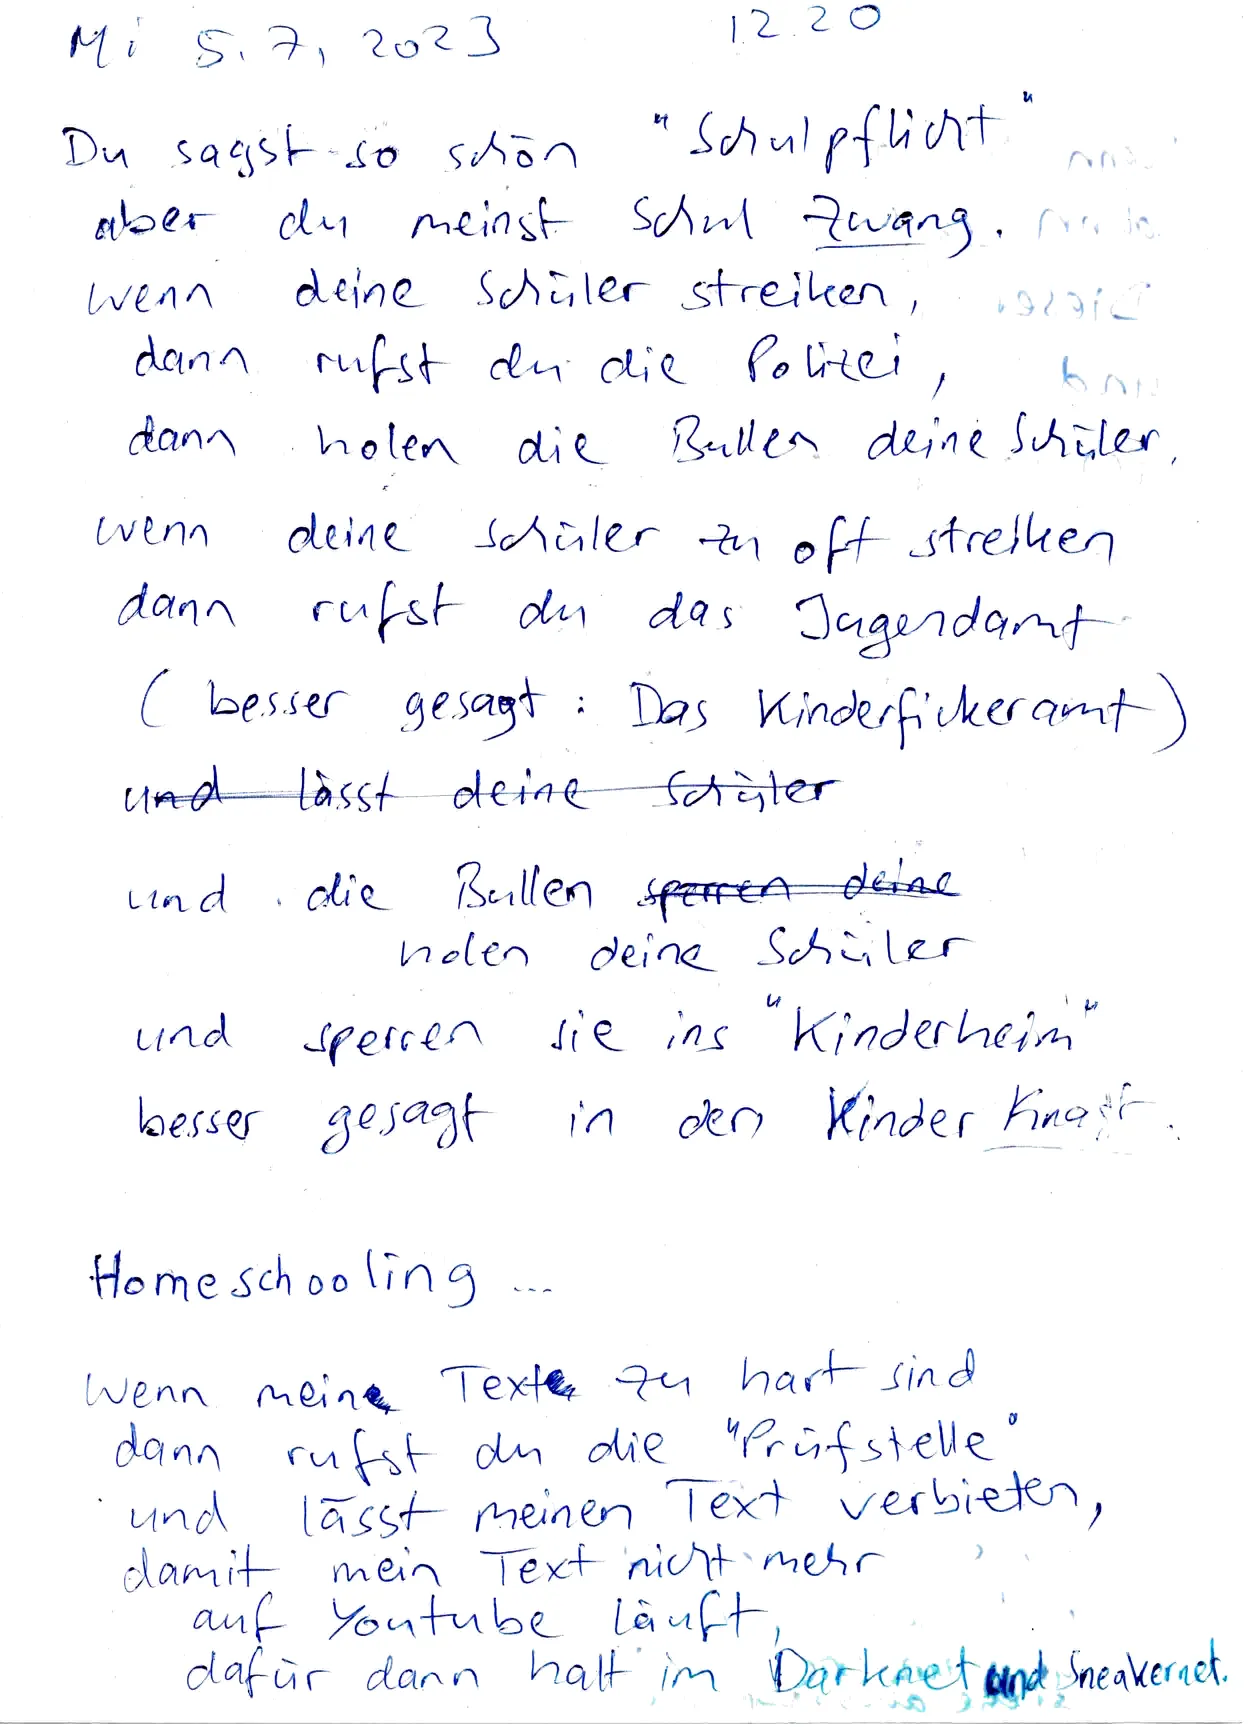 Mi 5.7, 2023 12.20
Du sagst so schön "Schulpflicht"
aber du meinst Schul Zwang.
wenn deine Schüler streiken,
dann rufst du die Polizei,
dann holen die Bullen deine Schüler.
wenn deine Schüler zu oft streiken
dann rufst du das Jugendamt
(besser gesagt: Das Kinderfickeramt)
und lässt deine Schüler
und die Bullen sperren deine
holen deine Schüler
und sperren sie ins "Kinderheim"
besser gesagt in den Kinder Knast.
Homeschooling ...
wenn meine Texte zu hart sind
dann rufst du die "Prüfstelle"
und lässt meinen Text verbieten,
damit mein Text nicht mehr
auf Youtube läuft,
dafür dann halt im Darknet und Sneakernet.